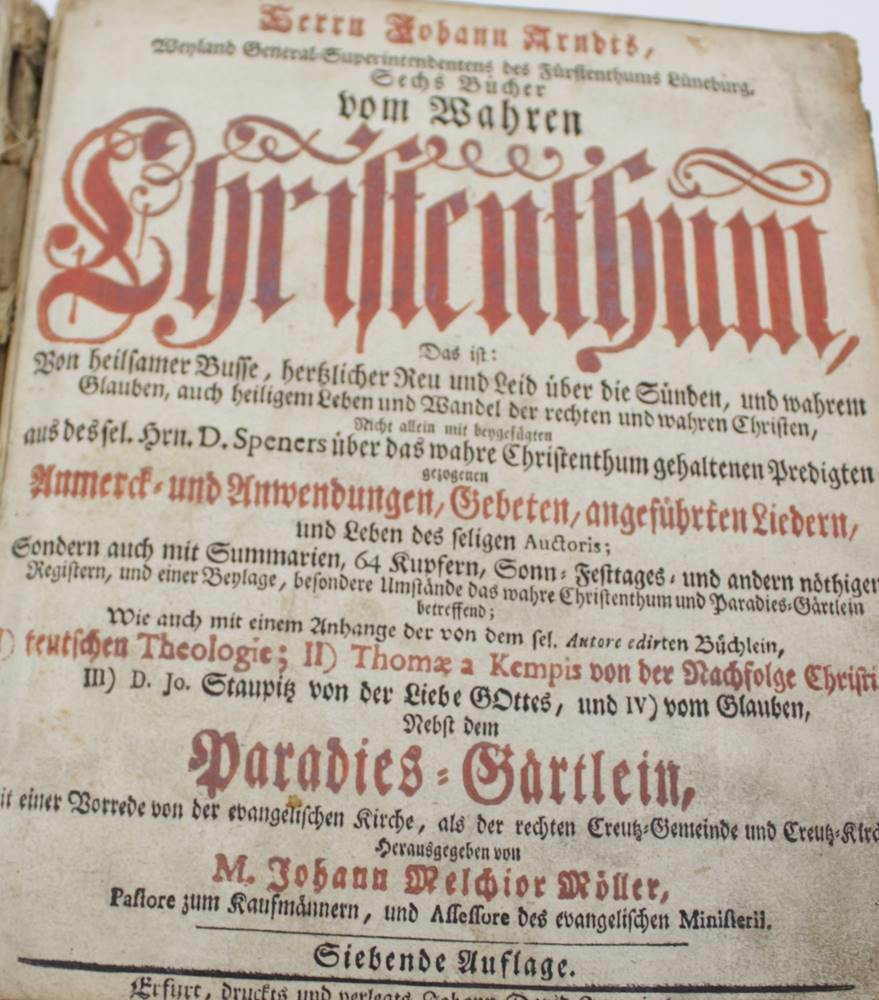 Herrn Johann Arndts,
Weyland General-Superintendentens des Fürstenthums Lüneburg,
Sechs Bücher
vom Wahren
Christenthum,
Das ist:
Von heilsamer Busse, hertzlicher Reu und Leid über die Sünden, und wahrem
Glauben, auch heiligem Leben und Wandel der rechten und wahren Christen,
Nicht allein mit beygefügten
aus des sel. Hrn. D. Speners über das wahre Christenthum gehaltenen Predigten
gezogenen
Anmerck- und Anwendungen, Gebeten, angeführten Liedern,
und Leben des seligen Auctoris;
Sondern auch mit Summarien, 64 Kupfern, Sonn- Festtages- und andern nöthigen
Registern, und einer Beylage, besondere Umstände das wahre Christenthum und Paradies-Gärtlein
betreffend;
Wie auch mit einem Anhange der von dem sel. Autore edirten Büchlein,
I) teutschen Theologie; II) Thomæ a Kempis von der Nachfolge Christi
III) D. Jo. Staupitz von der Liebe GOttes, und IV) vom Glauben,
Nebst dem
Paradies-Gärtlein,
it einer Vorrede von der evangelischen Kirche, als der rechten Creutz-Gemeinde und Creutz-Kirc
Herausgegeben von
M. Johann Melchior Möller,
Pastore zum Kaufmännern, und Assessore des evangelischen Ministerii.
Siebende Auflage.
Erfurt, druckts und verlegts Johann David